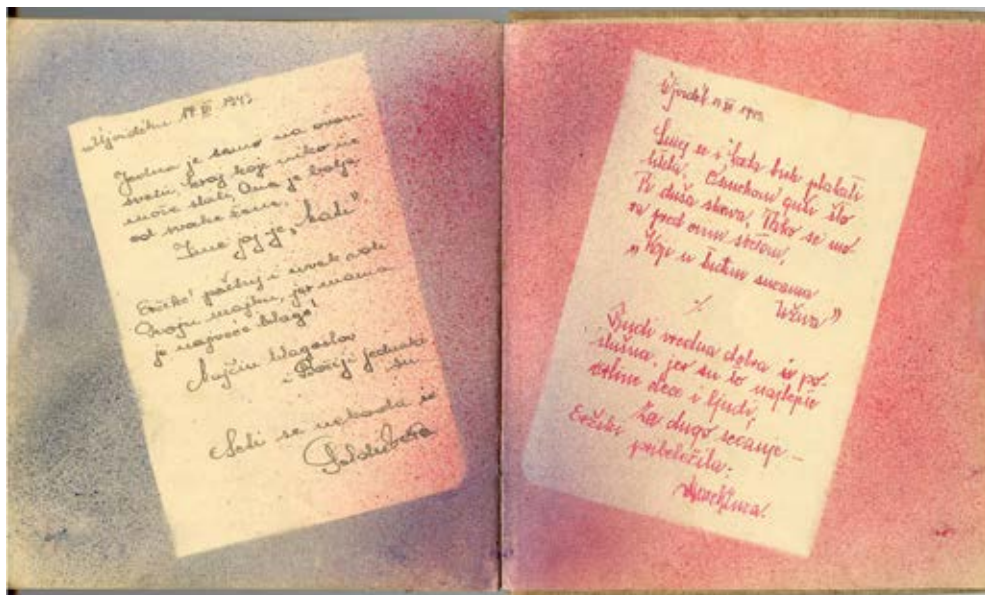 Újvidéku 17 III 1943
Jedna je samo na ovom
svetu, kraj koje niko ne
može stati, Ona je bolja
od svake žene,
Ime joj je „Mati”.
Eržiko! poštuj i uvek voli
svoju majku, jer mama
je najveće blago!
Majčin blagoslov
i Božiji jednaki
su.
Seti se nekada i
Újvidék 17 III 1943
Smej se i kada bih plakati
htela, Osmehom guši što
Ti duša skriva, Neko se mo-
ra pred ovim svetom,
„Koji u tuđim suzama
uživa”
·/·
Budi vredna dobra i po-
slušna, jer su to najlepše
vrline dece i ljudi,
Za dugo sećanje –
Eržiki
pribeležila: